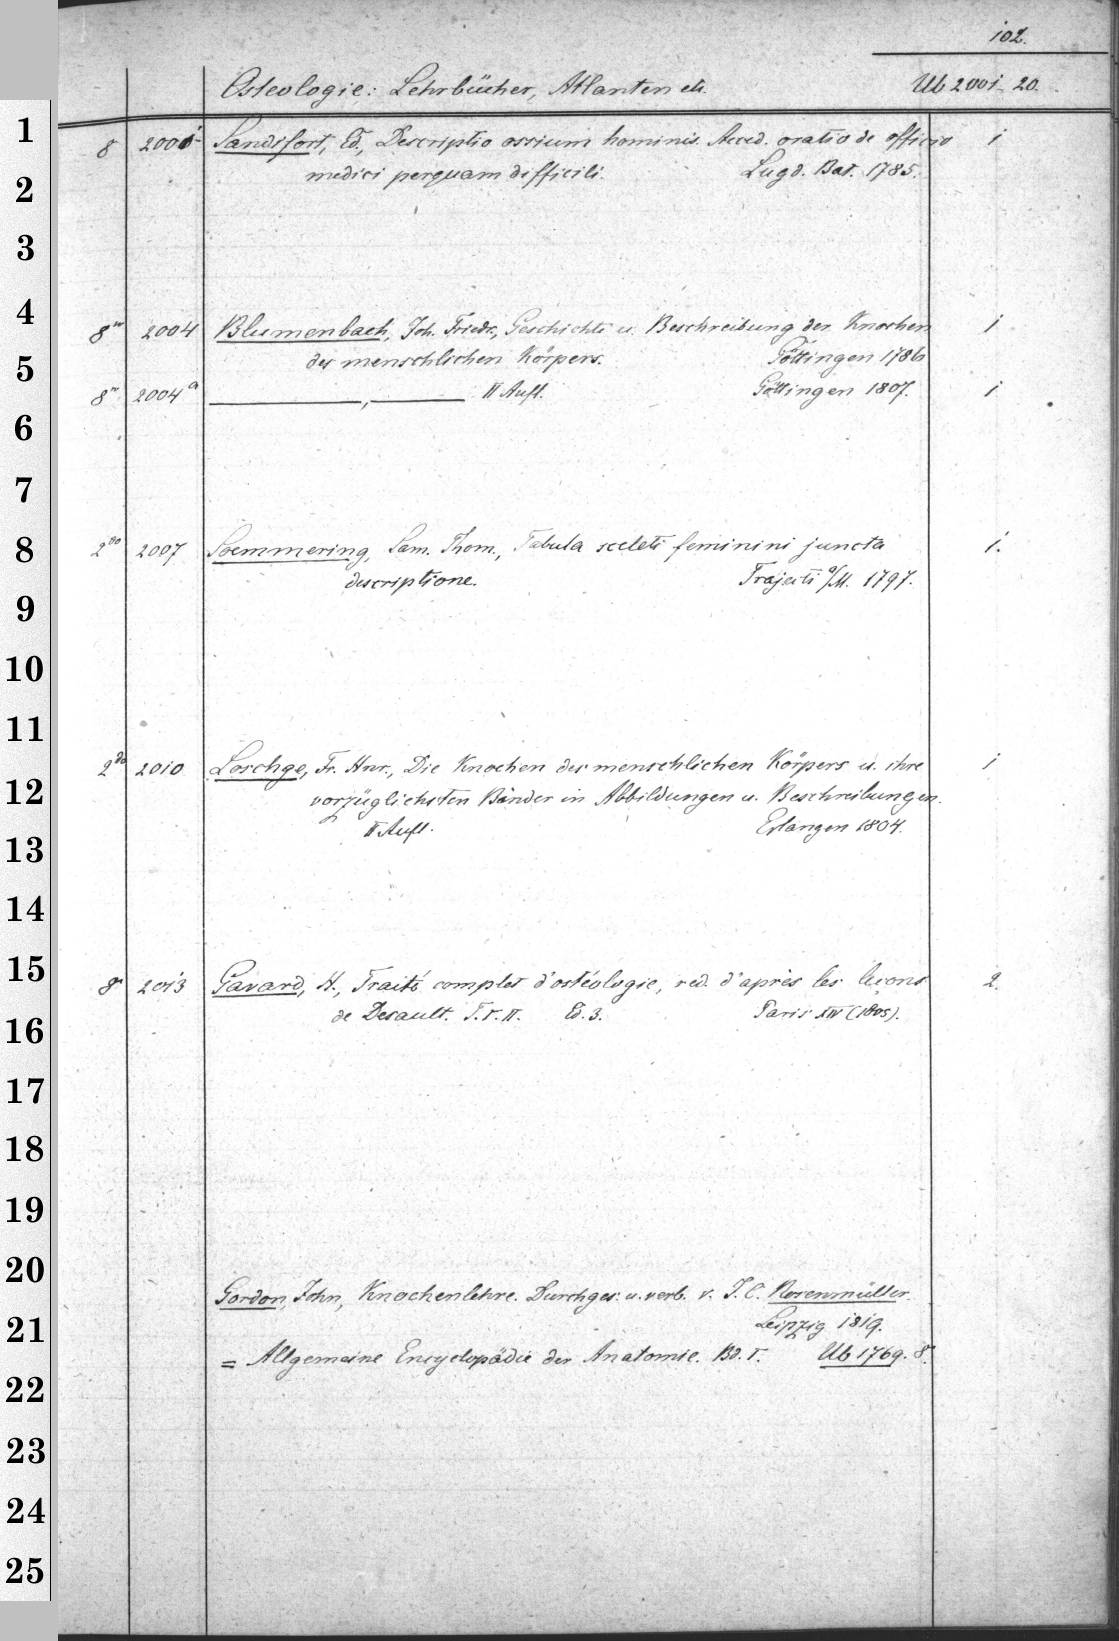 102.
Osteologie: Lehrbücher, Atlanten etc. Ub 2001-20.
1
8 2001 Sandifort, Ed., Descriptio ossium hominis. Acced. oratio de officio 1
2
medici perquam difficili. Lugd. Bat. 1785.
3
4
8° 2004 Blumenbach, Joh. Friedr., Geschichte u. Beschreibung der Knochen 1
5
des menschlichen Körpers. Göttingen 1786
8° 2004a ———, ——— II Aufl. Göttingen 1807. 1
6
7
8
2do 2007 Soemmering, Sam. Thom., Tabula sceleti feminini juncta 1.
9
descriptione. Trajecti a/M. 1797.
10
11
2do 2010 Loschge, Fr. Hnr., Die Knochen des menschlichen Körpers u. ihre 1
12
vorzüglichsten Bänder in Abbildungen u. Beschreibungen.
13
II Aufl. Erlangen 1804.
14
15
8° 2013 Gavard, H., Traité complet d'ostéologie, red. d'après les leçons 2.
16
de Desault. T. I. II. Ed. 3. Paris XIV (1805).
17
18
19
20
Gordon, John, Knochenlehre. Durchges. u. verb. v. J. C. Rosenmüller.
21
Leipzig 1819.
= Allgemeine Encyclopädie der Anatomie. Bd. I. Ub 1769. 8°.
22
23
24
25